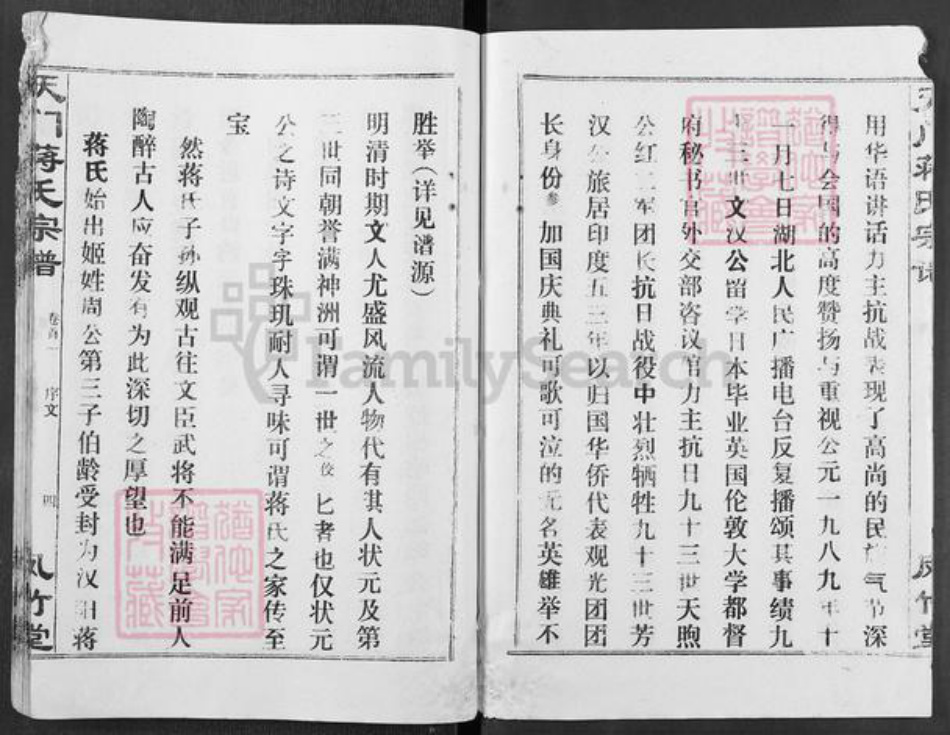 用华语讲话力主抗战表现了高尚的民族气节深
得与会国的高度赞扬与重视公元一九八九年十
一月七日湖北人民广播电台反复播颂其事绩九
十三世文汉公留学日本毕业英国伦敦大学都督
府秘书官外交部咨议官力主抗日九十三世天煦
公红二军团长抗日战役中壮烈牺牲九十三世芳
汉公旅居印度五三年以归国华侨代表观光团团
长身份参加国庆典礼可歌可泣的无名英雄举不
天门蒋氏宗谱
凤竹堂
胜举(详见谱源)
明清时期文人尤盛风流人物代有其人状元及第
三世同朝誉满神洲可谓一世之佼匕者也仅状元
公之诗文字字珠玑耐人寻味可谓蒋氏之家传至
宝
然蒋氏子孙纵观古往文臣武将不能满足前人
陶醉古人应奋发有为此深切之厚望也
蒋氏始出姬姓周公第三子伯龄受封为汉阳蒋
天门蒋氏宗谱
卷首一
序文
四
凤竹堂
FamilySearch